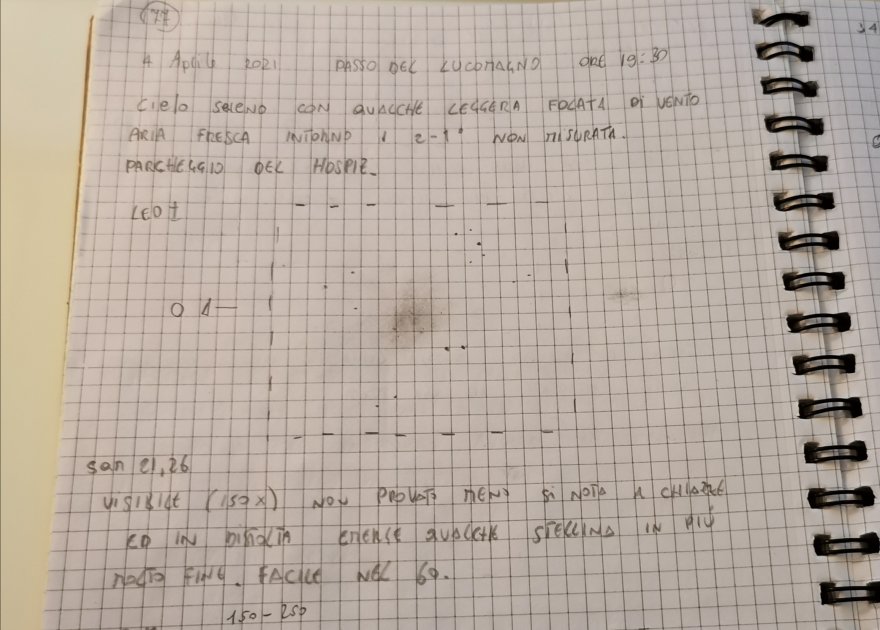 77
4 Aprile 2021 PASSO DEL LUCOMAGNO ORE 19:30
cielo SERENO CON QUALCHE LEGGERA FOLATA DI VENTO
ARIA FRESCA INTORNO I 2-1° NON MISURATA.
PARCHEGGIO DEL HOSPIZ.
LEO I
O
SQM 21,26
VISIBILE (150X) NON PROVATO MENO SI NOTA A
ED IN DISTOLTA EMERGE QUALCHE STELLINA IN PIÙ
MOLTO FINE. FACILE NEL 60.
150-250